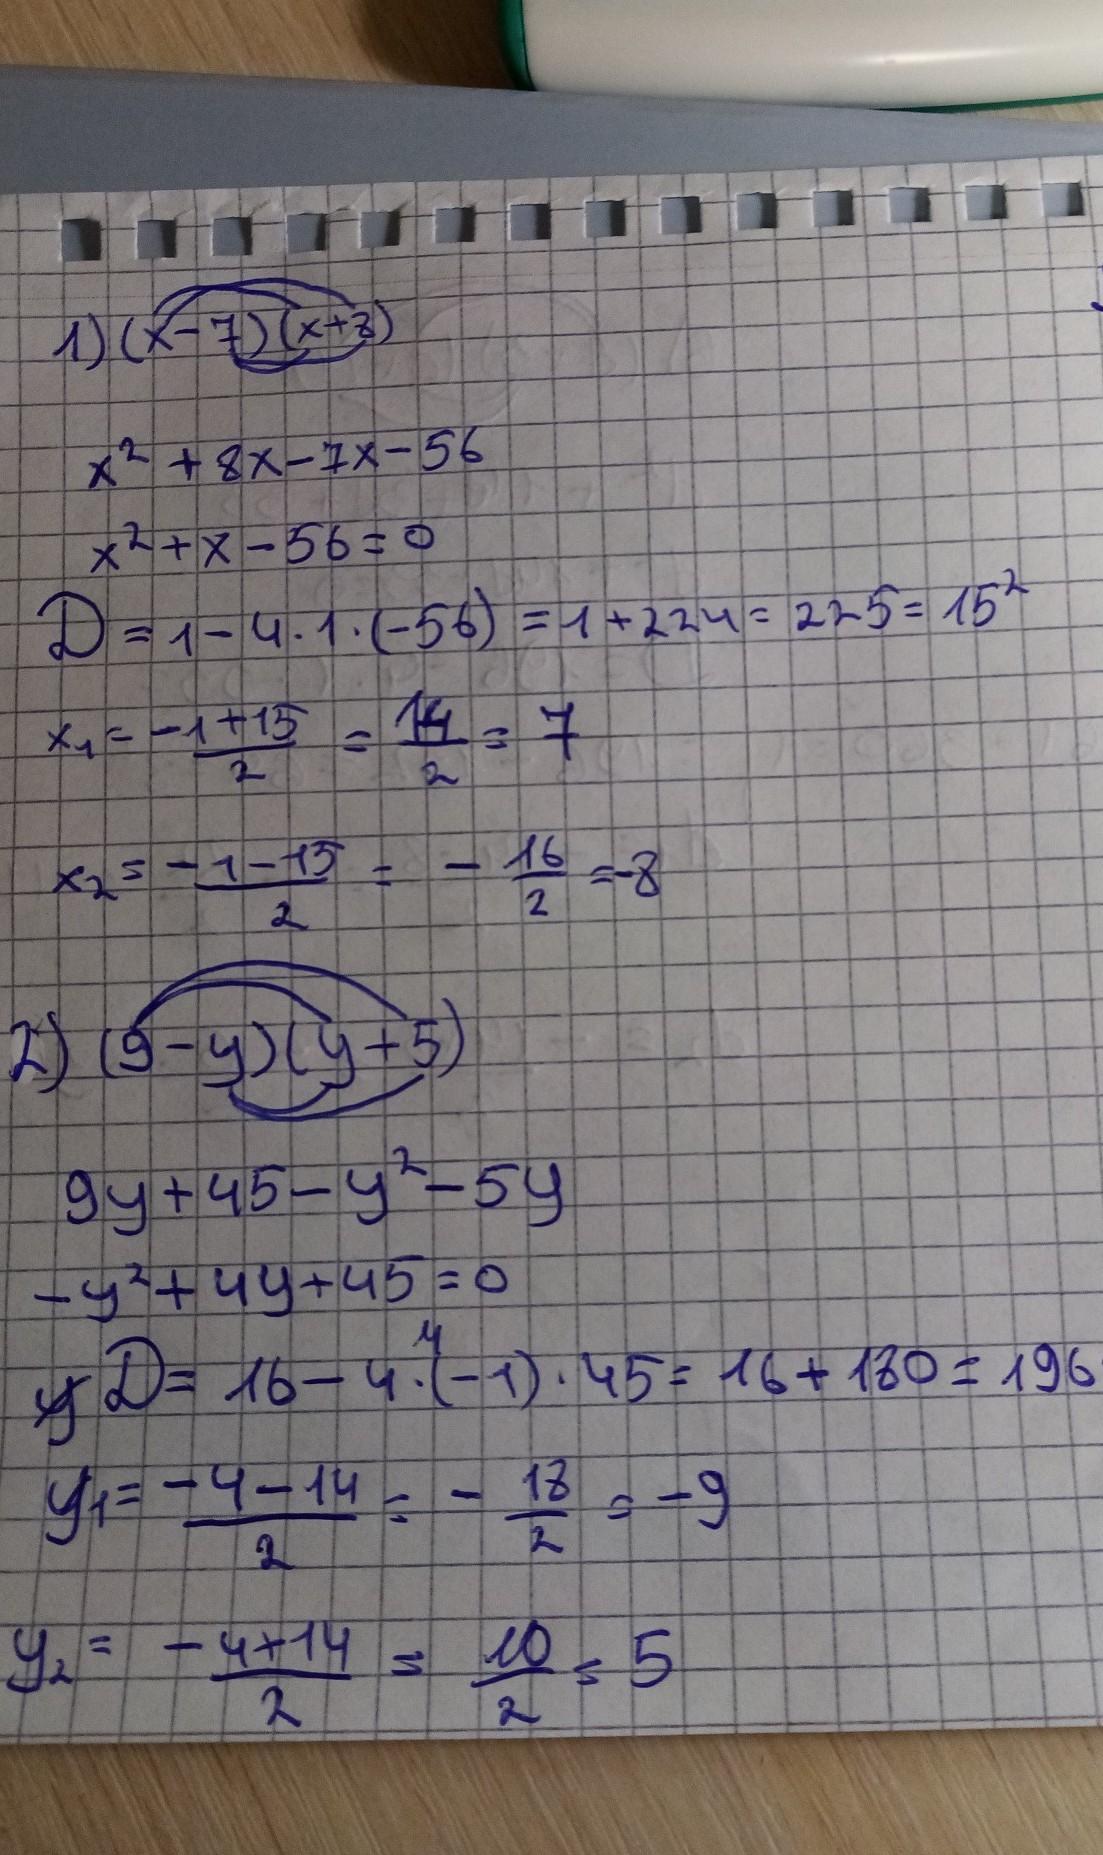 1) (x-7)(x+8)
x² + 8x-7x-56
x²+x-56=0
D=1-4·1·(-56)=1+224=225=15²
x₁=\frac{-1+15}{2}=\frac{14}{2}=7
x₂=\frac{-1-15}{2}=-\frac{16}{2}=-8
2) (9-y)(y+5)
9y+45-y²-5y
-y²+4y+45=0
D=16-4·(-1)·45=16+180=196
y₁=\frac{-4-14}{2}=-\frac{18}{2}=-9
y₂=\frac{-4+14}{2}=\frac{10}{2}=5